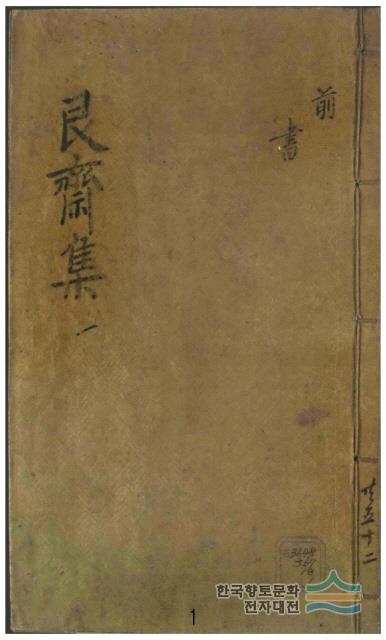 前
書
艮齋集
一
共五十二
한국향토문화
전자대전
1